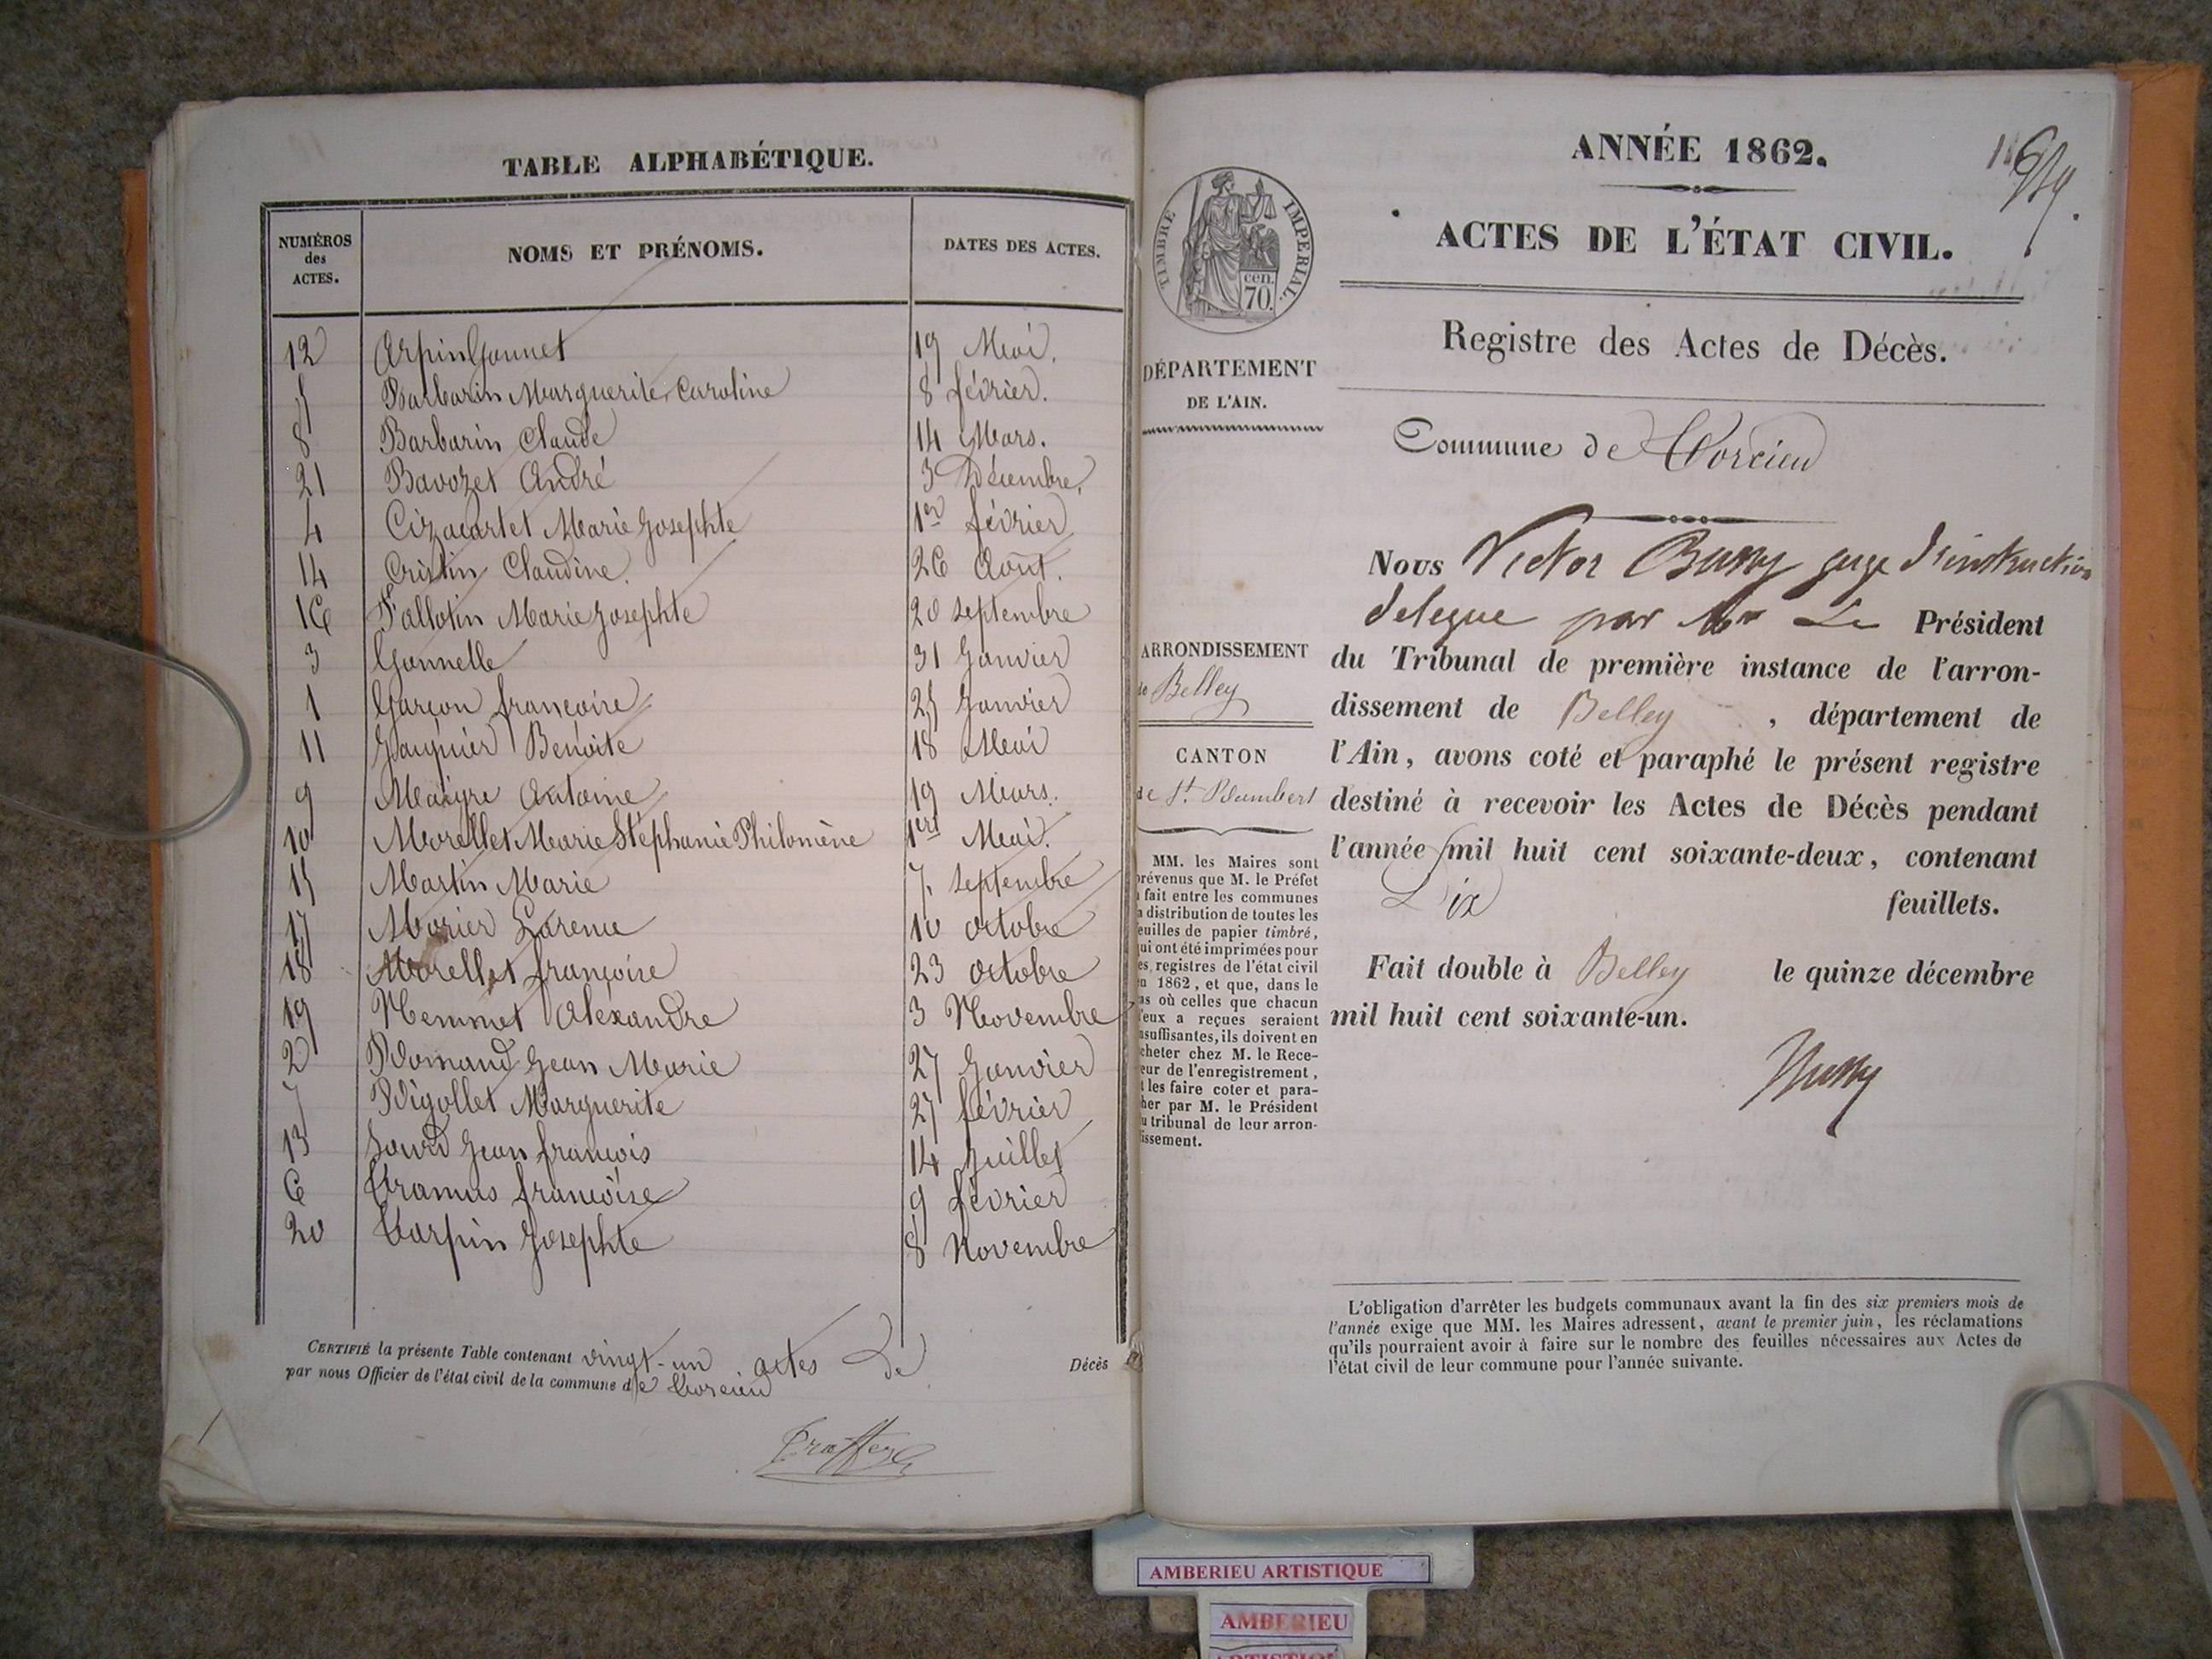 TABLE ALPHABÉTIQUE.
NUMÉROS
des
ACTES.
NOMS ET PRÉNOMS.
DATES DES ACTES.
12 Arpin Gonnet 19 Mai.
5 Barbarin Marguerite Caroline 8 février.
8 Barbarin Claude 14 Mars.
21 Bavozet André 3 Décembre.
4 Marie Josephte 1er février
14 Cristin Claudine. 26 Août.
16 Fallotin Marie Josephte 20 septembre
3 Gonnelle 31 Janvier
1 Garçon françoise 25 Janvier
11 Benoite 18 Mai
9 Maigre Antoine 19 Mars.
10 Morellet Marie Stéphanie Philomène 1er Mai.
15 Martin Marie 7 septembre
17 Morier 10 octobre
18 Morellet françoise 23 octobre
19 Hemmet Aléxandre 3 Novembre
2 Romand Jean Marie 27 Janvier
7 Rigollet Marguerite 27 février
13 Sourd Jean francois 14 Juillet
6 Tramus françoise 9 février
20 Varpin Josephte 8 Novembre
CERTIFIÉ la présente Table contenant vingt-un actes de Décès
par nous Officier de l'état civil de la commune de Torcieu
ANNÉE 1862.
ACTES DE L'ÉTAT CIVIL.
TIMBRE IMPERIAL.
cen.
70.
Registre des Actes de Décès.
DÉPARTEMENT
DE L'AIN.
Commune de Torcieu
Nous Victor Bussy juge d'instruction
delegue par Mr Le Président
ARRONDISSEMENT
de Belley
du Tribunal de première instance de l'arron-
dissement de Belley, département de
CANTON
de St. Rambert
l'Ain, avons coté et paraphé le présent registre
destiné à recevoir les Actes de Décès pendant
l'année mil huit cent soixante-deux, contenant
Dix feuillets.
Fait double à Belley le quinze décembre
mil huit cent soixante-un.
Bussy
MM. les Maires sont
prévenus que M. le Préfet
a fait entre les communes
la distribution de toutes les
feuilles de papier timbré,
qui ont été imprimées pour
les registres de l'état civil
en 1862, et que, dans le
cas où celles que chacun
d'eux a reçues seraient
insuffisantes, ils doivent en
acheter chez M. le Rece-
veur de l'enregistrement,
et les faire coter et para-
pher par M. le Président
du tribunal de leur arron-
dissement.
L'obligation d'arrêter les budgets communaux avant la fin des six premiers mois de
l'année exige que MM. les Maires adressent, avant le premier juin, les réclamations
qu'ils pourraient avoir à faire sur le nombre des feuilles nécessaires aux Actes de
l'état civil de leur commune pour l'année suivante.
AMBERIEU ARTISTIQUE
AMBERIEU
ARTISTIQUE